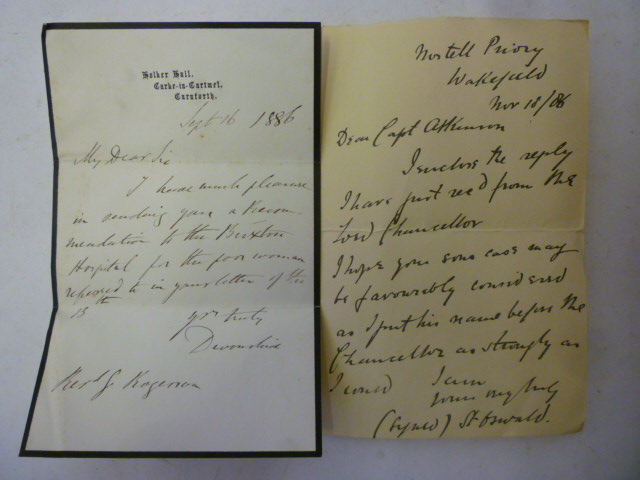 Holker Hall,
Carke-in-Cartmel,
Carnforth.
Sept 16 1886
My Dear Sir
I have much pleasure
in sending you a Recom-
mendation to the Buxton
Hospital for the poor woman
referred to in your letter of the
15th
yrs truly
Devonshire
Revd J Rogerson
Nostell Priory
Wakefield
Nov 18/08
Dear Capt Atkinson
I enclose the reply
I have just recd from the
Lord Chancellor
I hope your sons case may
be favourably considered
as I put his name before the
Chancellor as strongly as
I could I am
yours very truly
(Signed) St Oswald.